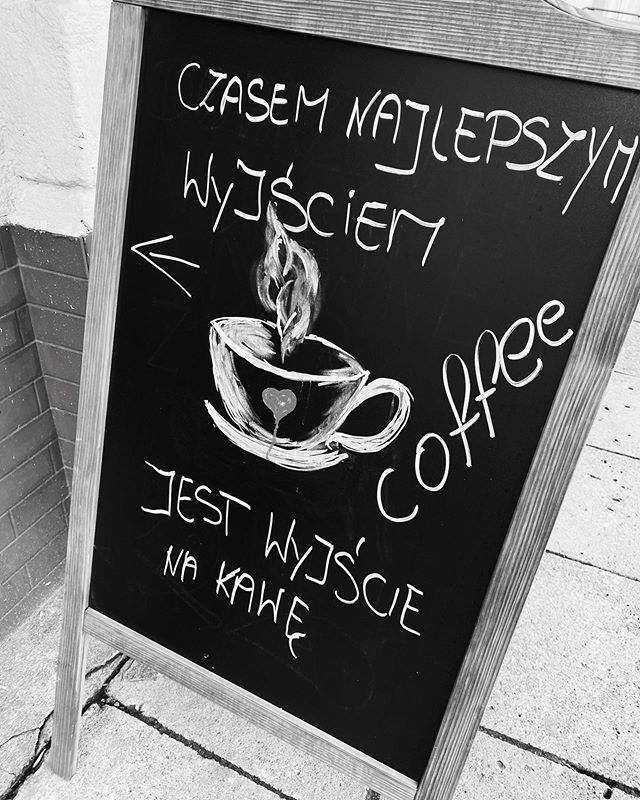 CZASEM NAJLEPSZYM
WYJŚCIEM
coffee
JEST WYJŚCIE
NA KAWĘ